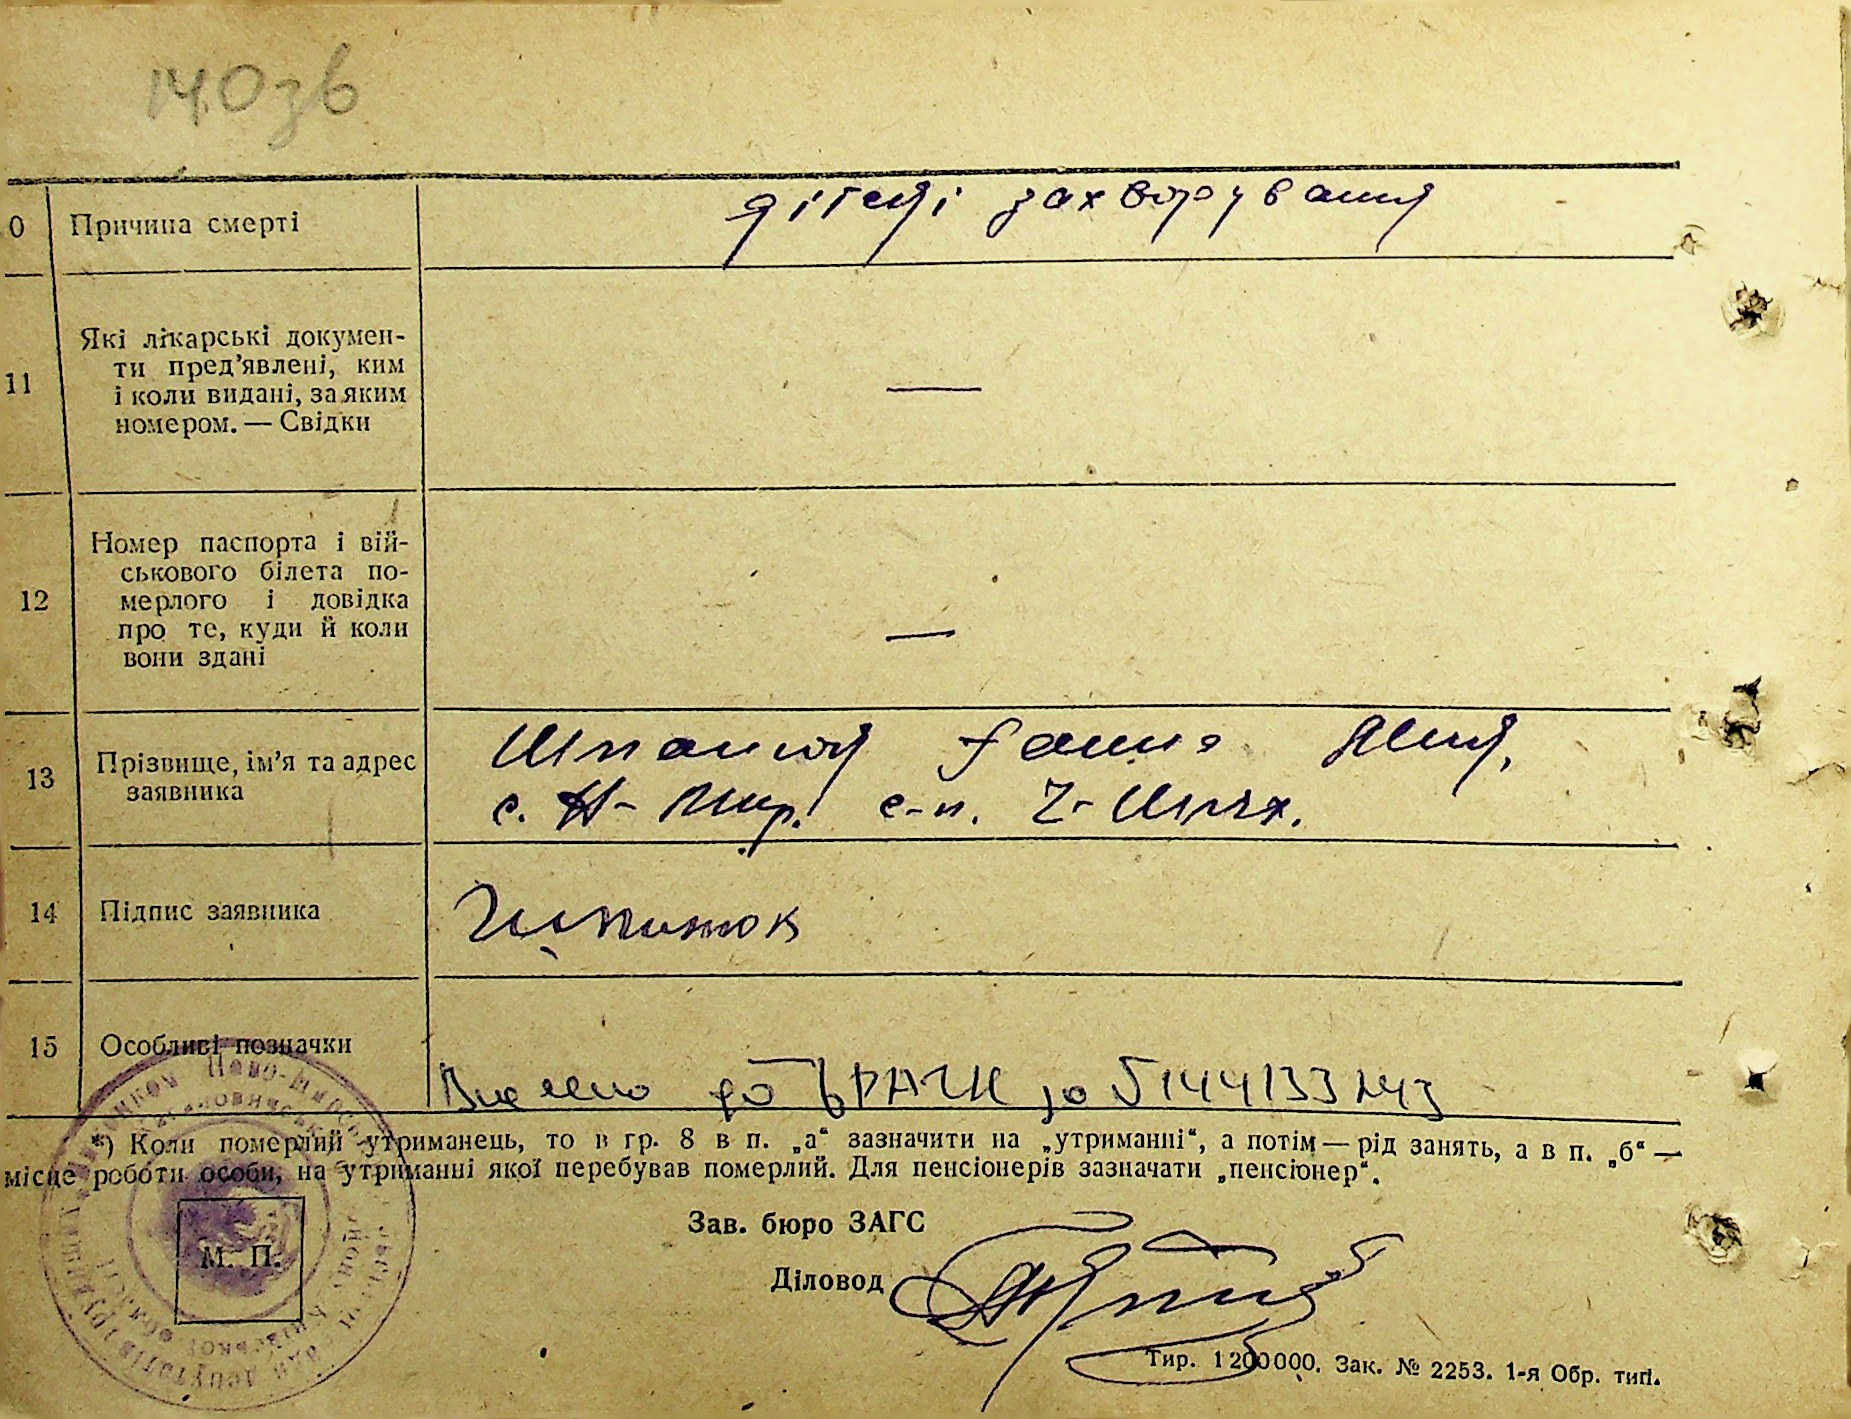 140зв
0 Причина смерті
дітячі захворування
11 Які лікарські докумен-
ти пред’явлені, ким
і коли видані, за яким
номером. — Свідки
—
12 Номер паспорта і вій-
ськового білета по-
мерлого і довідка
про те, куди й коли
вони здані
—
13 Прізвище, ім’я та адрес
заявника
с. Н-
14 Підпис заявника
15 Особливі позначки
Внесено до ДРАЦС за 5144133243
*) Коли померлий утриманець, то в гр. 8 в п. „а“ зазначити на „утриманні“, а потім — рід занять, а в п. „б“ —
місце роботи особи, на утриманні якої перебував померлий. Для пенсіонерів зазначати „пенсіонер“.
М. П.
Зав. бюро ЗАГС
Діловод
Тир. 1200000. Зак. № 2253. 1-я Обр. тип.